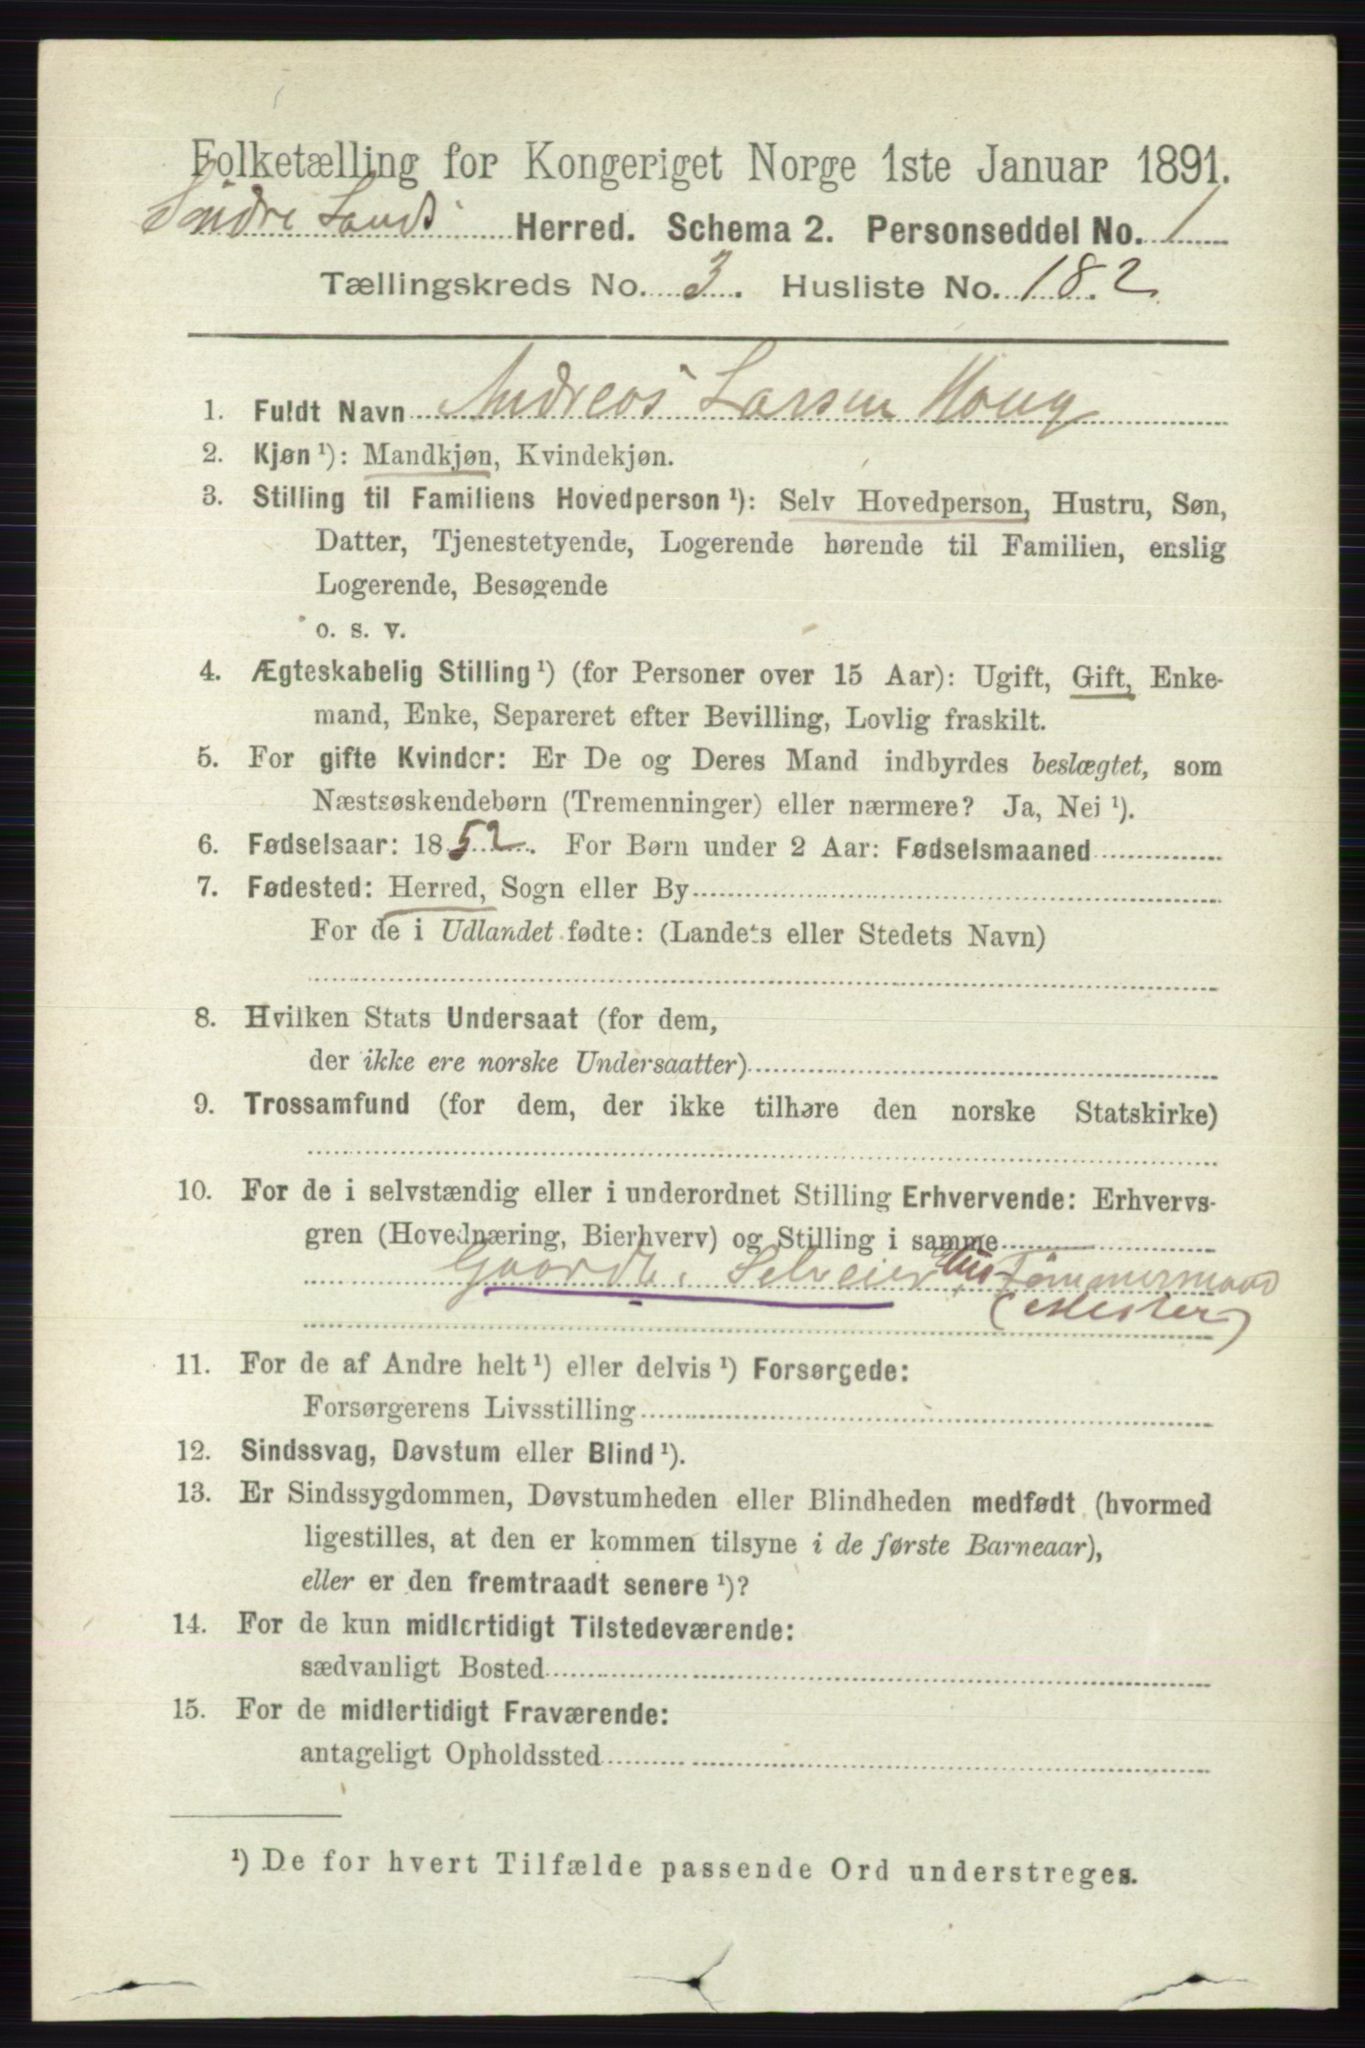 Folketælling for Kongeriget Norge 1ste Januar 1891.
Søndre Land Herred. Schema 2. Personseddel No. 1
Tællingskreds No. 3. Husliste No. 182
1. Fuldt Navn Andreas Larsen Houg
2. Kjøn ¹): Mandkjøn, Kvindekjøn.
3. Stilling til Familiens Hovedperson ¹): Selv Hovedperson, Hustru, Søn,
Datter, Tjenestetyende, Logerende hørende til Familien, enslig
Logerende, Besøgende
o. s. v.
4. Ægteskabelig Stilling ¹) (for Personer over 15 Aar): Ugift, Gift, Enke-
mand, Enke, Separeret efter Bevilling, Lovlig fraskilt.
5. For gifte Kvinder: Er De og Deres Mand indbyrdes beslægtet, som
Næstsøskendebørn (Tremenninger) eller nærmere? Ja, Nei ¹).
6. Fødselsaar: 1852. For Børn under 2 Aar: Fødselsmaaned
7. Fødested: Herred, Sogn eller By
For de i Udlandet fødte: (Landets eller Stedets Navn)
8. Hvilken Stats Undersaat (for dem,
der ikke ere norske Undersaatter)
9. Trossamfund (for dem, der ikke tilhøre den norske Statskirke)
10. For de i selvstændig eller i underordnet Stilling Erhvervende: Erhvervs-
gren (Hovednæring, Bierhverv) og Stilling i samme
Gaardb. Selveier Hus Tømmermand
(Mester)
11. For de af Andre helt ¹) eller delvis ¹) Forsørgede:
Forsørgerens Livsstilling
12. Sindssvag, Døvstum eller Blind ¹).
13. Er Sindssygdommen, Døvstumheden eller Blindheden medfødt (hvormed
ligestilles, at den er kommen tilsyne i de første Barneaar),
eller er den fremtraadt senere ¹)?
14. For de kun midlertidigt Tilstedeværende:
sædvanligt Bosted
15. For de midlertidigt Fraværende:
antageligt Opholdssted
¹) De for hvert Tilfælde passende Ord understreges.